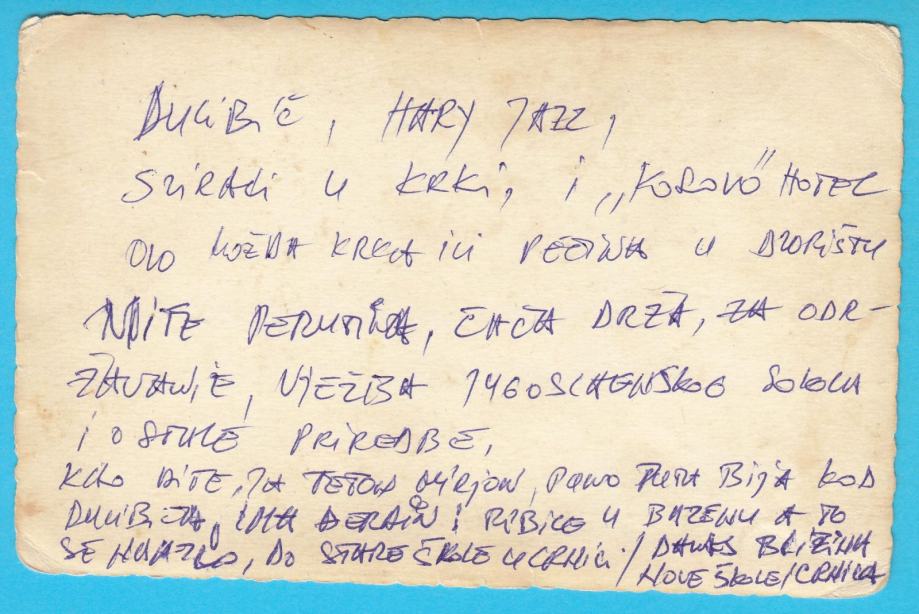 DULIBIĆ, HARY JAZZ,
SVIRALI U KRKI, I „KOROVO" HOTEL
OVO MOŽDA KRKA ILI PEĆINA U DVORIŠTU
NITE PERUTINA, ĆAĆA DRŽA, ZA ODR-
ŽAVANJE, VJEŽBA JUGOSLAVENSKOG SOKOLA
I OSTALE PRIREDBE,
KAO DITE, JA TETOM MIRJOM, PUNO PUTA BIJA KOD
DULIBIĆA, IMA ĐERAN I RIBICE U BAZENU A TO
SE NALAZLO, DO STARE ŠKOLE U CRNICI / DANAS BLIZINA
NOVE ŠKOLE / CRNICA